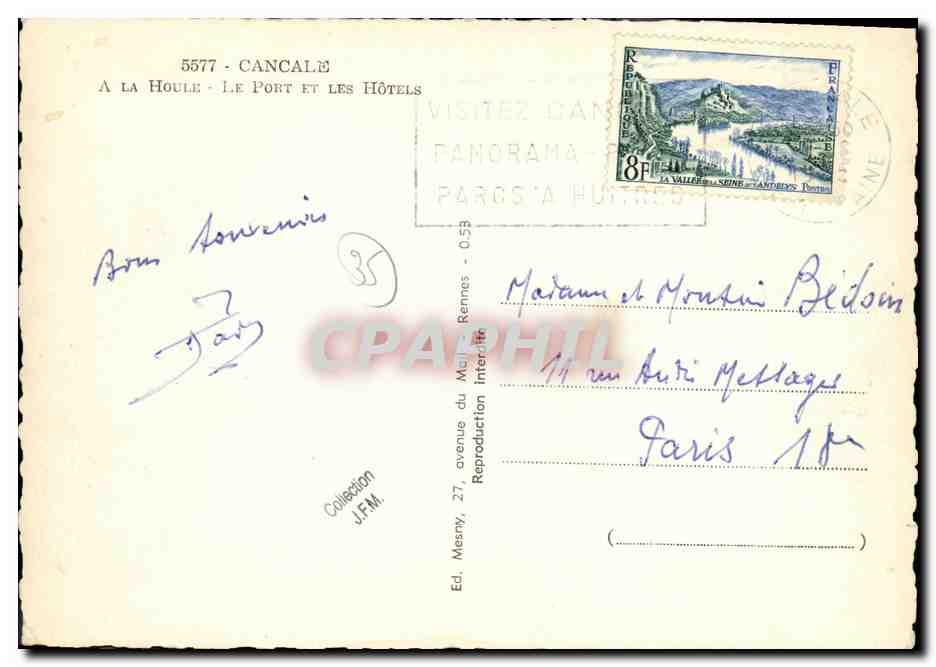 5577 - CANCALE
A LA HOULE - LE PORT ET LES HÔTELS
VISITEZ CAN
PANORAMA -
PARCS A HUITRES
RÉPUBLIQUE
FRANÇAISE
8F
LA VALLÉE DE LA SEINE AUX ANDELYS POSTES
Bons souvenirs
35
Madame et Monsieur Bédoin
11 rue André Messager
Paris 18e
CPAPHIL
Collection
J.F.M.
Ed. Mesny, 27, avenue du Mail - Rennes - 0.53
Reproduction interdite
(
)